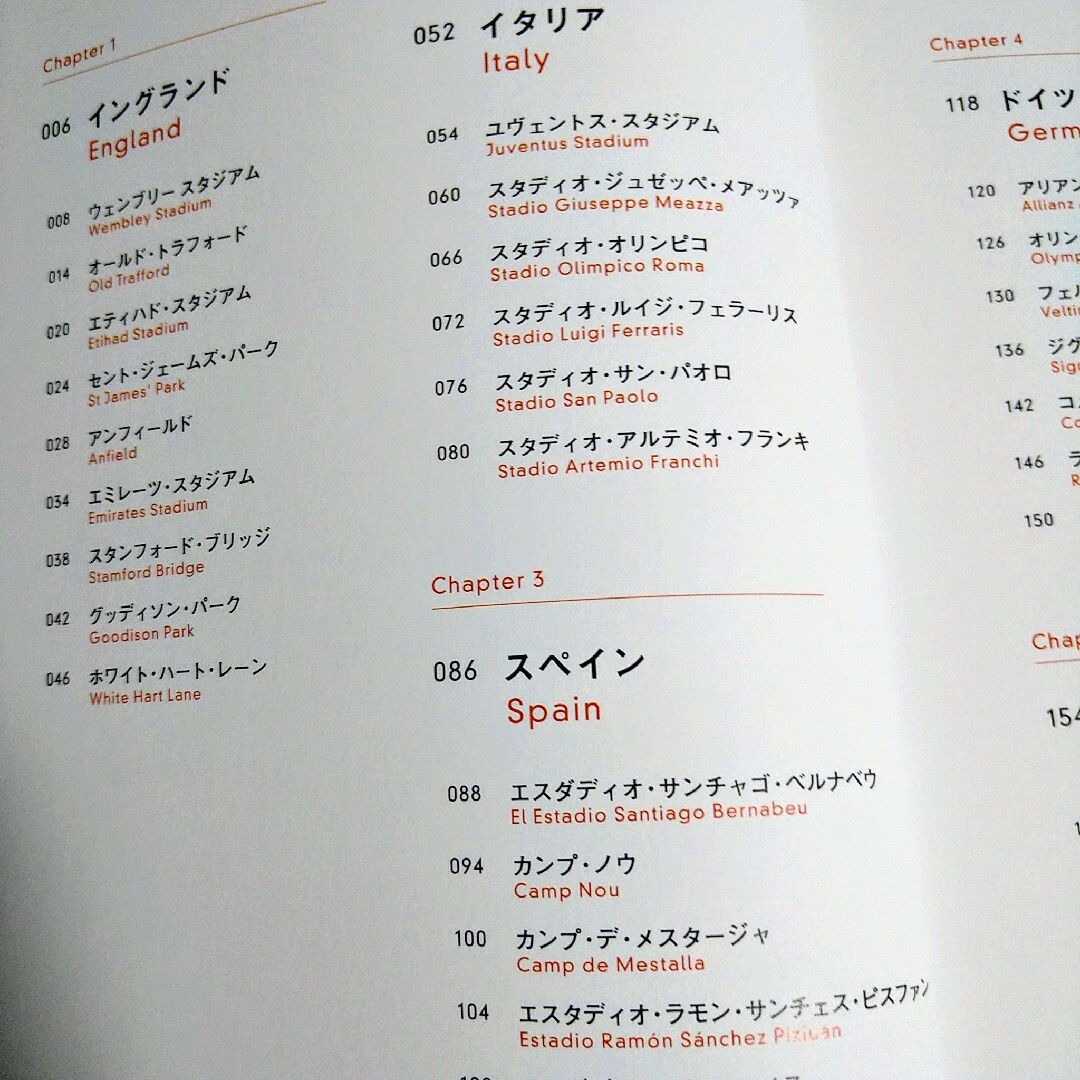 Chapter 1
006 イングランド
England
008 ウェンブリー スタジアム
Wembley Stadium
014 オールド・トラフォード
Old Trafford
020 エティハド・スタジアム
Etihad Stadium
024 セント・ジェームズ・パーク
St James' Park
028 アンフィールド
Anfield
034 エミレーツ・スタジアム
Emirates Stadium
038 スタンフォード・ブリッジ
Stamford Bridge
042 グッディソン・パーク
Goodison Park
046 ホワイト・ハート・レーン
White Hart Lane
052 イタリア
Italy
054 ユヴェントス・スタジアム
Juventus Stadium
060 スタディオ・ジュゼッペ・メアッツァ
Stadio Giuseppe Meazza
066 スタディオ・オリンピコ
Stadio Olimpico Roma
072 スタディオ・ルイジ・フェラーリス
Stadio Luigi Ferraris
076 スタディオ・サン・パオロ
Stadio San Paolo
080 スタディオ・アルテミオ・フランキ
Stadio Artemio Franchi
Chapter 3
086 スペイン
Spain
088 エスダディオ・サンチャゴ・ベルナベウ
El Estadio Santiago Bernabeu
094 カンプ・ノウ
Camp Nou
100 カンプ・デ・メスタージャ
Camp de Mestalla
104 エスタディオ・ラモン・サンチェス・ピスファン
Estadio Ramón Sánchez
Chapter 4
118 ドイツ
Germ
120 アリアン
Allianz
126 オリン
Olymp
130 フェル
Veltin
136 ジグ
Sign
142 コメ
Co
146 ラ
R
150
Chap
154